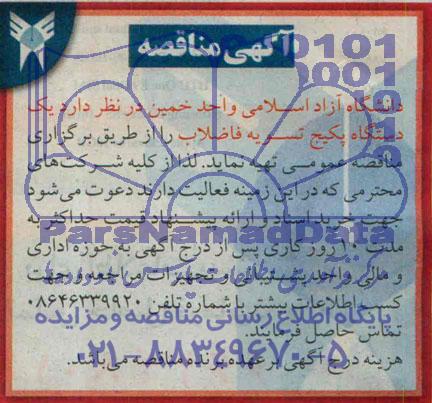 آگهی مناقصه
دانشگاه آزاد اسلامی واحد خمین در نظر دارد یک
دستگاه پکیج تسریه فاضلاب را از طریق برگزاری
مناقصه عمومی تهیه نماید. لذا از کلیه شرکت‌های
محترمی که در این زمینه فعالیت دارند دعوت می‌شود
جهت خرید اسناد و ارائه پیشنهاد قیمت حداکثر به
مدت ۱۰ روز کاری پس از درج آگهی به حوزه اداری
و مالی واحد پشتیبانی و تجهیزات مراجعه و جهت
کسب اطلاعات بیشتر با شماره تلفن ۰۸۶۴۶۳۳۹۹۲۰
تماس حاصل فرمایند.
هزینه درج آگهی بر عهده برنده مناقصه می‌باشد.
ParsNamadData
پایگاه اطلاع رسانی مناقصه و مزایده
۰۲۱-۸۸۳۴۹۶۷۰-۵